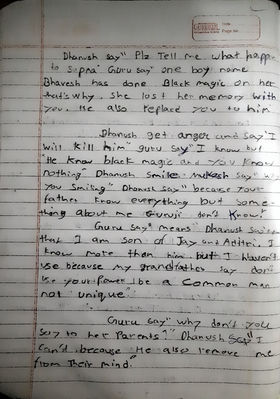 Dhanush say" Plz Tell me what happe
to sapna Guru say" one boy name
Bhavesh has done Black magic on her
that's why. She lost her memory with
you. He also replace you to him
Dhanush get anger and say "I
will kill him" guru say" I know but
"He know black magic and you know
nothing" Dhanush smile. Mukesh say"
you smiling" Dhanush say" because your
father know everything but some-
thing about me Guruji don't know!
Guru say" means" Dhanush say
that I am son of Jay and Aditri. I
know more than him but I haven't
use because my grandfather say don
use your power! be a common man
not unique".
Guru say" why don't you
say to her parents?" Dhanush say" I
can't because "He also remove me
from their mind."